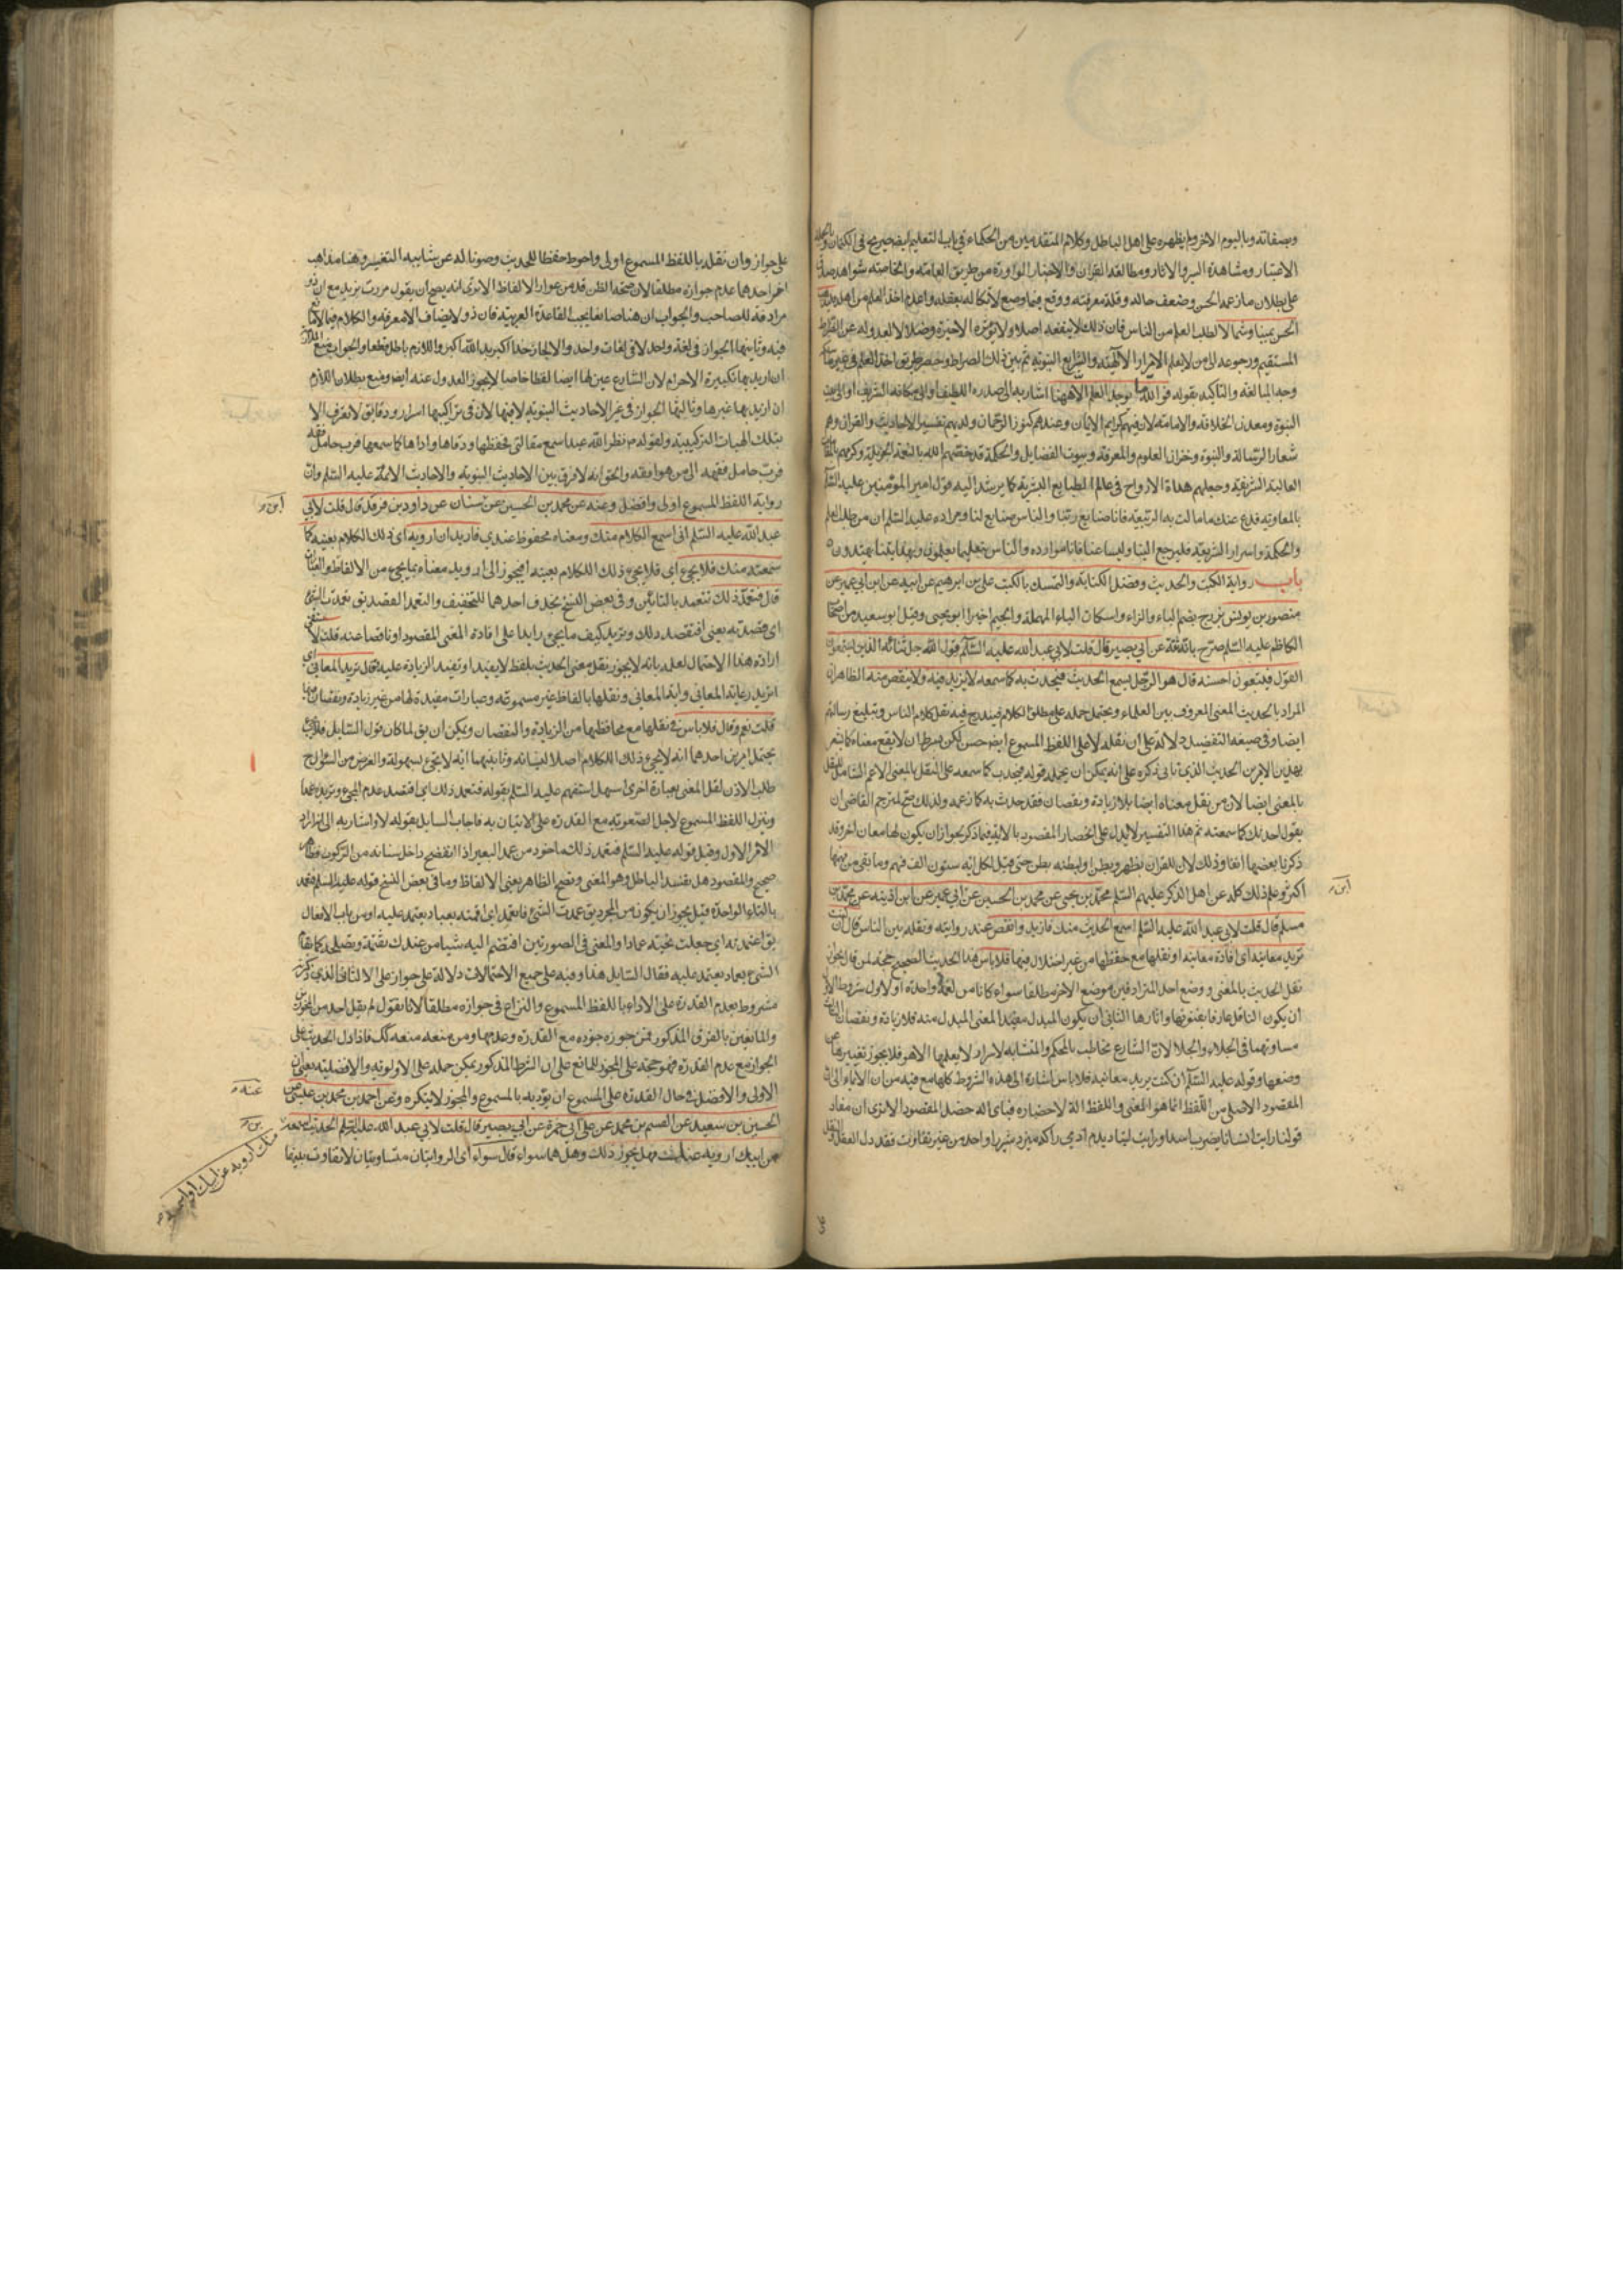 وبصفاته وباليوم الاخر ولم يظهره على اهل الباطل وكلام المتقدمين من الحكماء في باب التعليم ايضا صريح في الكتمان وبالجملة
الاعتبار ومشاهدة السير والاثار ومطالعة القران والاخبار الواردة من طريق العامة والخاصة شواهد صدق
على بطلان مازعمه الحسن وضعف حاله وقلة معرفته ووقع فيما وضع لاتكاله بعقله واعلم اخذ العلم من اهله فليذهب
الحسن يمينا وشمالا لطلب العلم من الناس فان ذلك لا ينفعه اصلا ولا يورثه الا حيرة وضلالا لعدوله عن الصراط
المستقيم ورجوعه الى من لا يعلم الاسرار الالهية والشرايع النبوية ثم بين ذلك الصراط وحصر طريق اخذ العلم فيه على
وجه المبالغة والتاكيد بقوله فوالله ما يوجد العلم الا ههنا اشار به الى صدره اللطيف او الى مكانه الشريف او الى بيت
النبوة ومعدن الخلافة والامامة لان فيهم كرايم الايمان وعندهم كنوز الرحمان ولديهم تفسير الاحاديث والقران وهم
شعار الرسالة والنبوة وخزان العلوم والمعرفة وبيوت الفضايل والحكمة قد خصهم الله بالنعمة الجزيلة وكرمهم
العالية الشريفة وجعلهم هداة الارواح في عالم الطبايع البشرية كما يرشد اليه قول امير المؤمنين عليه السلام
بالمعاوية فدع عنك ما مالت به الرمية فانا صنايع ربنا والناس صنايع لنا ومراده عليه السلام ان من طلب العلم
والحكمة واسرار الشريعة فليرجع الينا وليسئلنا فانا موارده والناس بتعليمنا يعلمون وبهدايتنا يهتدون
باب رواية الكتب والحديث وفضل الكتابة والتمسك بالكتب علي بن ابرهيم عن ابيه عن ابن ابي عمير عن
منصور بن يونس بزرج بضم الباء والزاء واسكان الراء المهملة والجيم اخيرا ابو يحيى وقيل ابو سعيد من اصحاب
الكاظم عليه السلام صرح بانه ثقة عن ابي بصير قال قلت لابي عبد الله عليه السلام قول الله جل ثنائه الذين يستمعون
القول فيتبعون احسنه قال هو الرجل يسمع الحديث فيحدث به كما سمعه لا يزيد فيه ولا ينقص منه الظاهر ان
المراد بالحديث المعنى المعروف بين العلماء ويحتمل حمله على مطلق الكلام فيندرج فيه نقل كلام الناس وتبليغ رسالتهم
ايضا وفي صيغة التفضيل دلالة على ان نقله لا على اللفظ المسموع ايضا حسن لكن بشرط ان لا يقع معناه كما يشعر
بهذين الامرين الحديث الذي ياتي ذكره على انه يمكن ان يجعل قوله فيحدث كما سمعه على النقل بالمعنى الاعم الشامل للنقل
بالمعنى ايضا لان من نقل معناه ايضا بلا زيادة ونقصان فقد حدث به كما سمعه ولذلك صح لمترجم القاضي ان
يقول احدثك كما سمعته ثم هذا التفسير لا يدل على انحصار المقصود بالاية فيما ذكر بجواز ان يكون لها معان اخر وقد
ذكرنا بعضها انفا وذلك لان للقران بطن وظهر ولبطنه بطن حتى قيل لكل اية ستون الف فهم وما بقي من فهمها
اكثر وعلم ذلك كله عن اهل الذكر عليهم السلم محمد بن يحيى عن محمد بن الحسين عن ابن ابي عمير عن ابن اذينة عن محمد بن
مسلم قال قلت لابي عبد الله عليه السلم اسمع الحديث منك فازيد وانقص عند روايته ونقله بين الناس قال ان كنت
تريد معانيه اي افادة معانيه او نقلها مع حفظها من غير اختلال فيها فلا باس هذا الحديث الصحيح حجة لمن قال بجواز
نقل الحديث بالمعنى ووضع احد المترادفين موضع الاخر مطلقا سواء كانا من لغة واحدة او لا ول شروط الاول
ان يكون الناقل عارفا بفنونها واثارها الثاني ان يكون المبدل مفيدا لمعنى المبدل منه بلا زيادة ونقصان الثالث
مساوتهما في الخفاء والجلاء لان الشارع يخاطب بالمحكم والمتشابه لاسرار لا يعلمها الا هو فلا يجوز تغييرها عن
وضعها وقوله عليه السلام ان كنت تريد معانيه فلا باس اشارة الى هذه الشروط كلها مع فيه من ان الايماء الى ان
المقصود الاصلي من اللفظ انما هو المعنى واللفظ الة لاحضاره فباي الة حصل المقصود الا ترى ان مفاد
قولنا رايت انسانا يضرب اسدا ورايت ليثا ديدم ادمي را كه ميزد شير را واحد من غير تفاوت فقد دل العقل والنقل
على جوازه وان نقله باللفظ المسموع اولى واحوط حفظا للحديث وصونا له عن شايبة التغيير وهنا مذاهب
اخر احدها عدم جوازه مطلقا لان صحة الظن قد من عوارض الالفاظ الا ترى انه يصح ان يقول مررت بزيد مع ان ذو
مرادفة للصاحب والجواب ان هنا مانعا بحسب القاعدة العربية فان ذو لا يضاف الا معرفة والكلام فيما لا مانع
فيه وثانيها الجواز في لغة واحدة لا في لغات واحد والا لجاز خدا اكبر بدل الله اكبر واللازم باطل قطعا والجواب منع الملازمة
ان اريد بها تكبيرة الاحرام لان الشارع عين لها ايضا لفظا خاصا لا يجوز العدول عنه ايضا ومنع بطلان اللازم
ان اريد بها غيرها وثالثها الجواز في غير الاحاديث النبوية لا فيها لان في تراكيبها اسرار ودقايق لا تعرف الا
بتلك الهيات التركيبية ولقوله ص نضر الله عبدا سمع مقالتي فحفظها ووعاها واداها كما سمعها فرب حامل فقه
فرب حامل فقه الى من هو افقه والحق انه لا فرق بين الاحاديث النبوية والاحاديث الائمة عليه السلم وان
رواية اللفظ المسموع اولى وافضل وعنه عن محمد بن الحسين عن ابن سنان عن داود بن فرقد قال قلت لابي
عبد الله عليه السلم اني اسمع الكلام منك ومعناه محفوظ عندي فاريد ان ارويه اي ذلك الكلام بعينه كما
سمعته منك فلا يجيء اي فلا يجيء ذلك الكلام بعينه افيجوز الى ارويه معناه بما يجيء من الالفاظ والعبارات
قال فتعمد ذلك تتعمد بالتائين وفي بعض النسخ بحذف احدهما للتخفيف والتعمد القصد يق تعمدت الشيء
اي قصدته يعني افتقصد ذلك وتريد كيف ما يجيء زايدا على افادة المعنى المقصود او ناقصا عنه قلت لا
ارادة هذا الاحتمال لعلمه بانه لا يجوز نقل معنى الحديث بلفظ لا يفيد او تفيد الزيادة عليه فقال تريد المعاني اي
اتريد رعاية المعاني واية المعاني ونقلها بالفاظ غير مسموعة وعبارات مفيدة لها من غير زيادة ونقصان فيها
قلت نعم وقال فلا باس في نقلها مع محافظتها من الزيادة والنقصان ويمكن ان يق لما كان قول السايل فلا يجيء
يحتمل امرين احدهما انه لا يجيء ذلك الكلام اصلا لنسيانه وثانيهما انه لا يجيء بسهولة والغرض من السؤال ح
طلب الاذن لنقل المعنى بعبارة اخرى اسهل استفهم عليه السلم بقوله فتعمد ذلك اي افتقصد عدم المجيء وتريده عمدا
وتنزل اللفظ المسموع لاجل الصعوبة مع القدرة على الاتيان به فاجاب السايل بقوله لا واشار به الى انه اراد
الامر الاول وقيل قوله عليه السلم فتعمد ذلك ماخوذ من عمد البعير اذا انفضح داخل سنامه من الركوب وظاهره
صحيح والمقصود هل يفسد الباطل وهو المعنى وتصلح الظاهر يعني الالفاظ وما في بعض النسخ قوله عليه السلم فتعمد
بالتاء الواحدة قيل يجوز ان يكون من المجرد يق عمدت الشيء فانعمد اي اقمته بعماد يعتمد عليه او من باب الافعال
يق اعمدته اي جعلت تحته عمادا والمعنى في الصورتين افتضم اليه شيا من عندك تقيمه وتصلحه كما يقام
الشيء بعماد يعتمد عليه فقال السايل هذا وفيه على جميع الاحتمالات دلالة على جوازه على الا الثاني الذي ذكرته
مشروط بعدم القدرة على الاداء باللفظ المسموع والنزاع في جوازه مطلقا لانا نقول لم يقل احد من المجوزين
والمانعين بالفرق المذكور فمن جوزه جوزه مع القدرة وعدمها ومن منعه منعه كك فاذا دل الحديث على
الجواز مع عدم القدرة فهو حجة على المجوز للمانع على ان الشرط المذكور يمكن حمله على الاولوية والافضلية يعني ان
الاولى والافضل في حال القدرة على المسموع ان يؤديه بالمسموع والمجوز لا ينكره وعن احمد بن محمد بن عيسى عن
الحسين بن سعيد عن القسم بن محمد عن علي بن ابي حمزة عن ابي بصير قال قلت لابي عبد الله عليه السلم الحديث اسمعه
من ابيك ارويه عنك فهل يجوز ذلك وهل هما سواء قال سواء اي الروايتان متساويتان لا تفاوت بينهما
منك ارويه عن ابيك او اسمعه